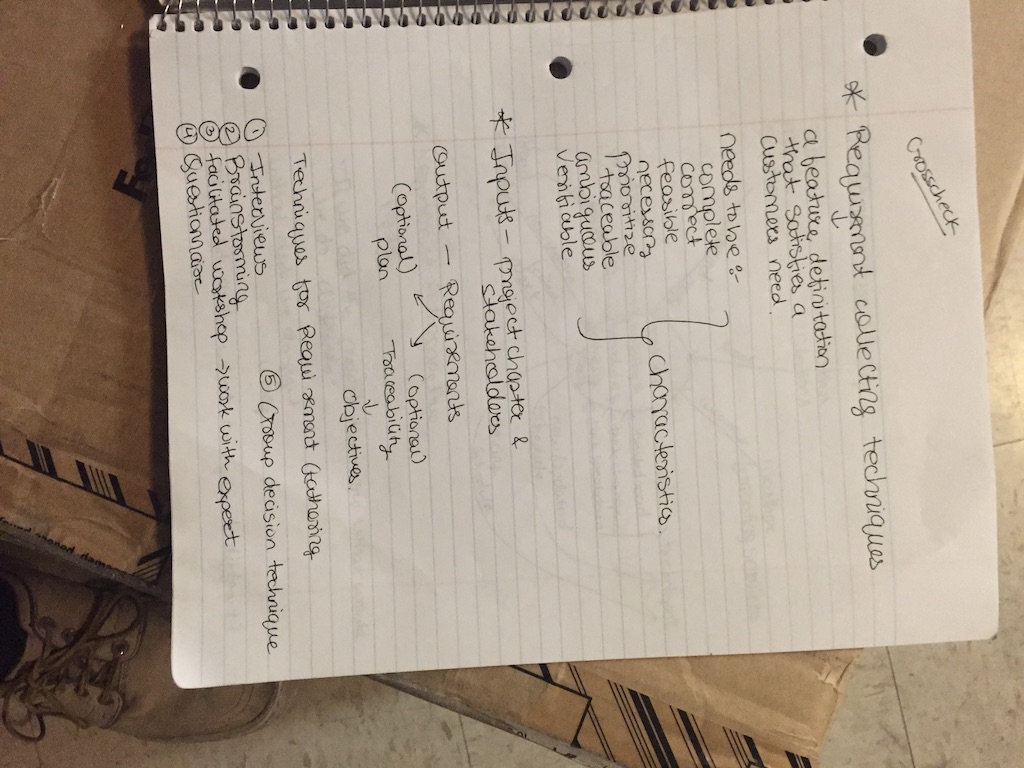 Crosscheck
* Requirement collecting techniques
a feature, definitation
that satisfies a
customers need.
needs to be :-
complete
correct
feasible
necessary
prioritize
traceable
ambiguous
verifiable
characteristics.
* Inputs - project chapter &
stakeholders
Output - Requirements
(optional) (optional)
plan Traceability
↓
Objectives.
Techniques for Requirement Gathering
① Interviews ⑤ Group decision technique
② Brainstorming
③ facilitated workshop → work with expert
④ Questionnaire